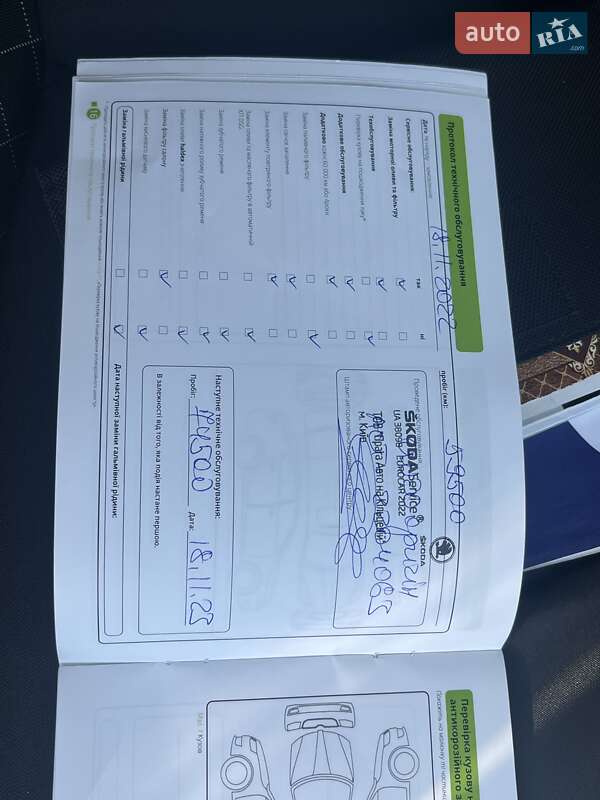 auto RIA .com
Протокол технічного обслуговування
Дата
18.11.2022
пробіг (км):
59500
Сервісне обслуговування:
так
ні
Заміна моторної оливи та фільтру
Техобслуговування
Перевірка кузову на пошкодження лаку*
Додаткове обслуговування
Додатково кожні 60 000 км або 4 роки
Заміна паливного фільтру
Заміна свічок запалення
Заміна елементу повітряного фільтру
Заміна оливи та масляного фільтру в автоматичній
Заміна зубчатого ременя
Заміна натяжного ролику зубчатого ременя
Заміна оливи haldex
Заміна фільтру салону
Заміна кисневого датчику
Заміна гальмівної рідини
Дата наступної заміни гальмівної рідини:
Проведене обслуговування
ŠKODA Service
ŠKODA
UA 38098 EUROCAR 2022
м. Київ
Штамп авторизованого
Наступне технічне обслуговування:
Пробіг: 74500 Дата: 18.11.23
В залежності від того, яка подія настане першою.
16
Перевірка кузову н
антикорозійного з
Кузов